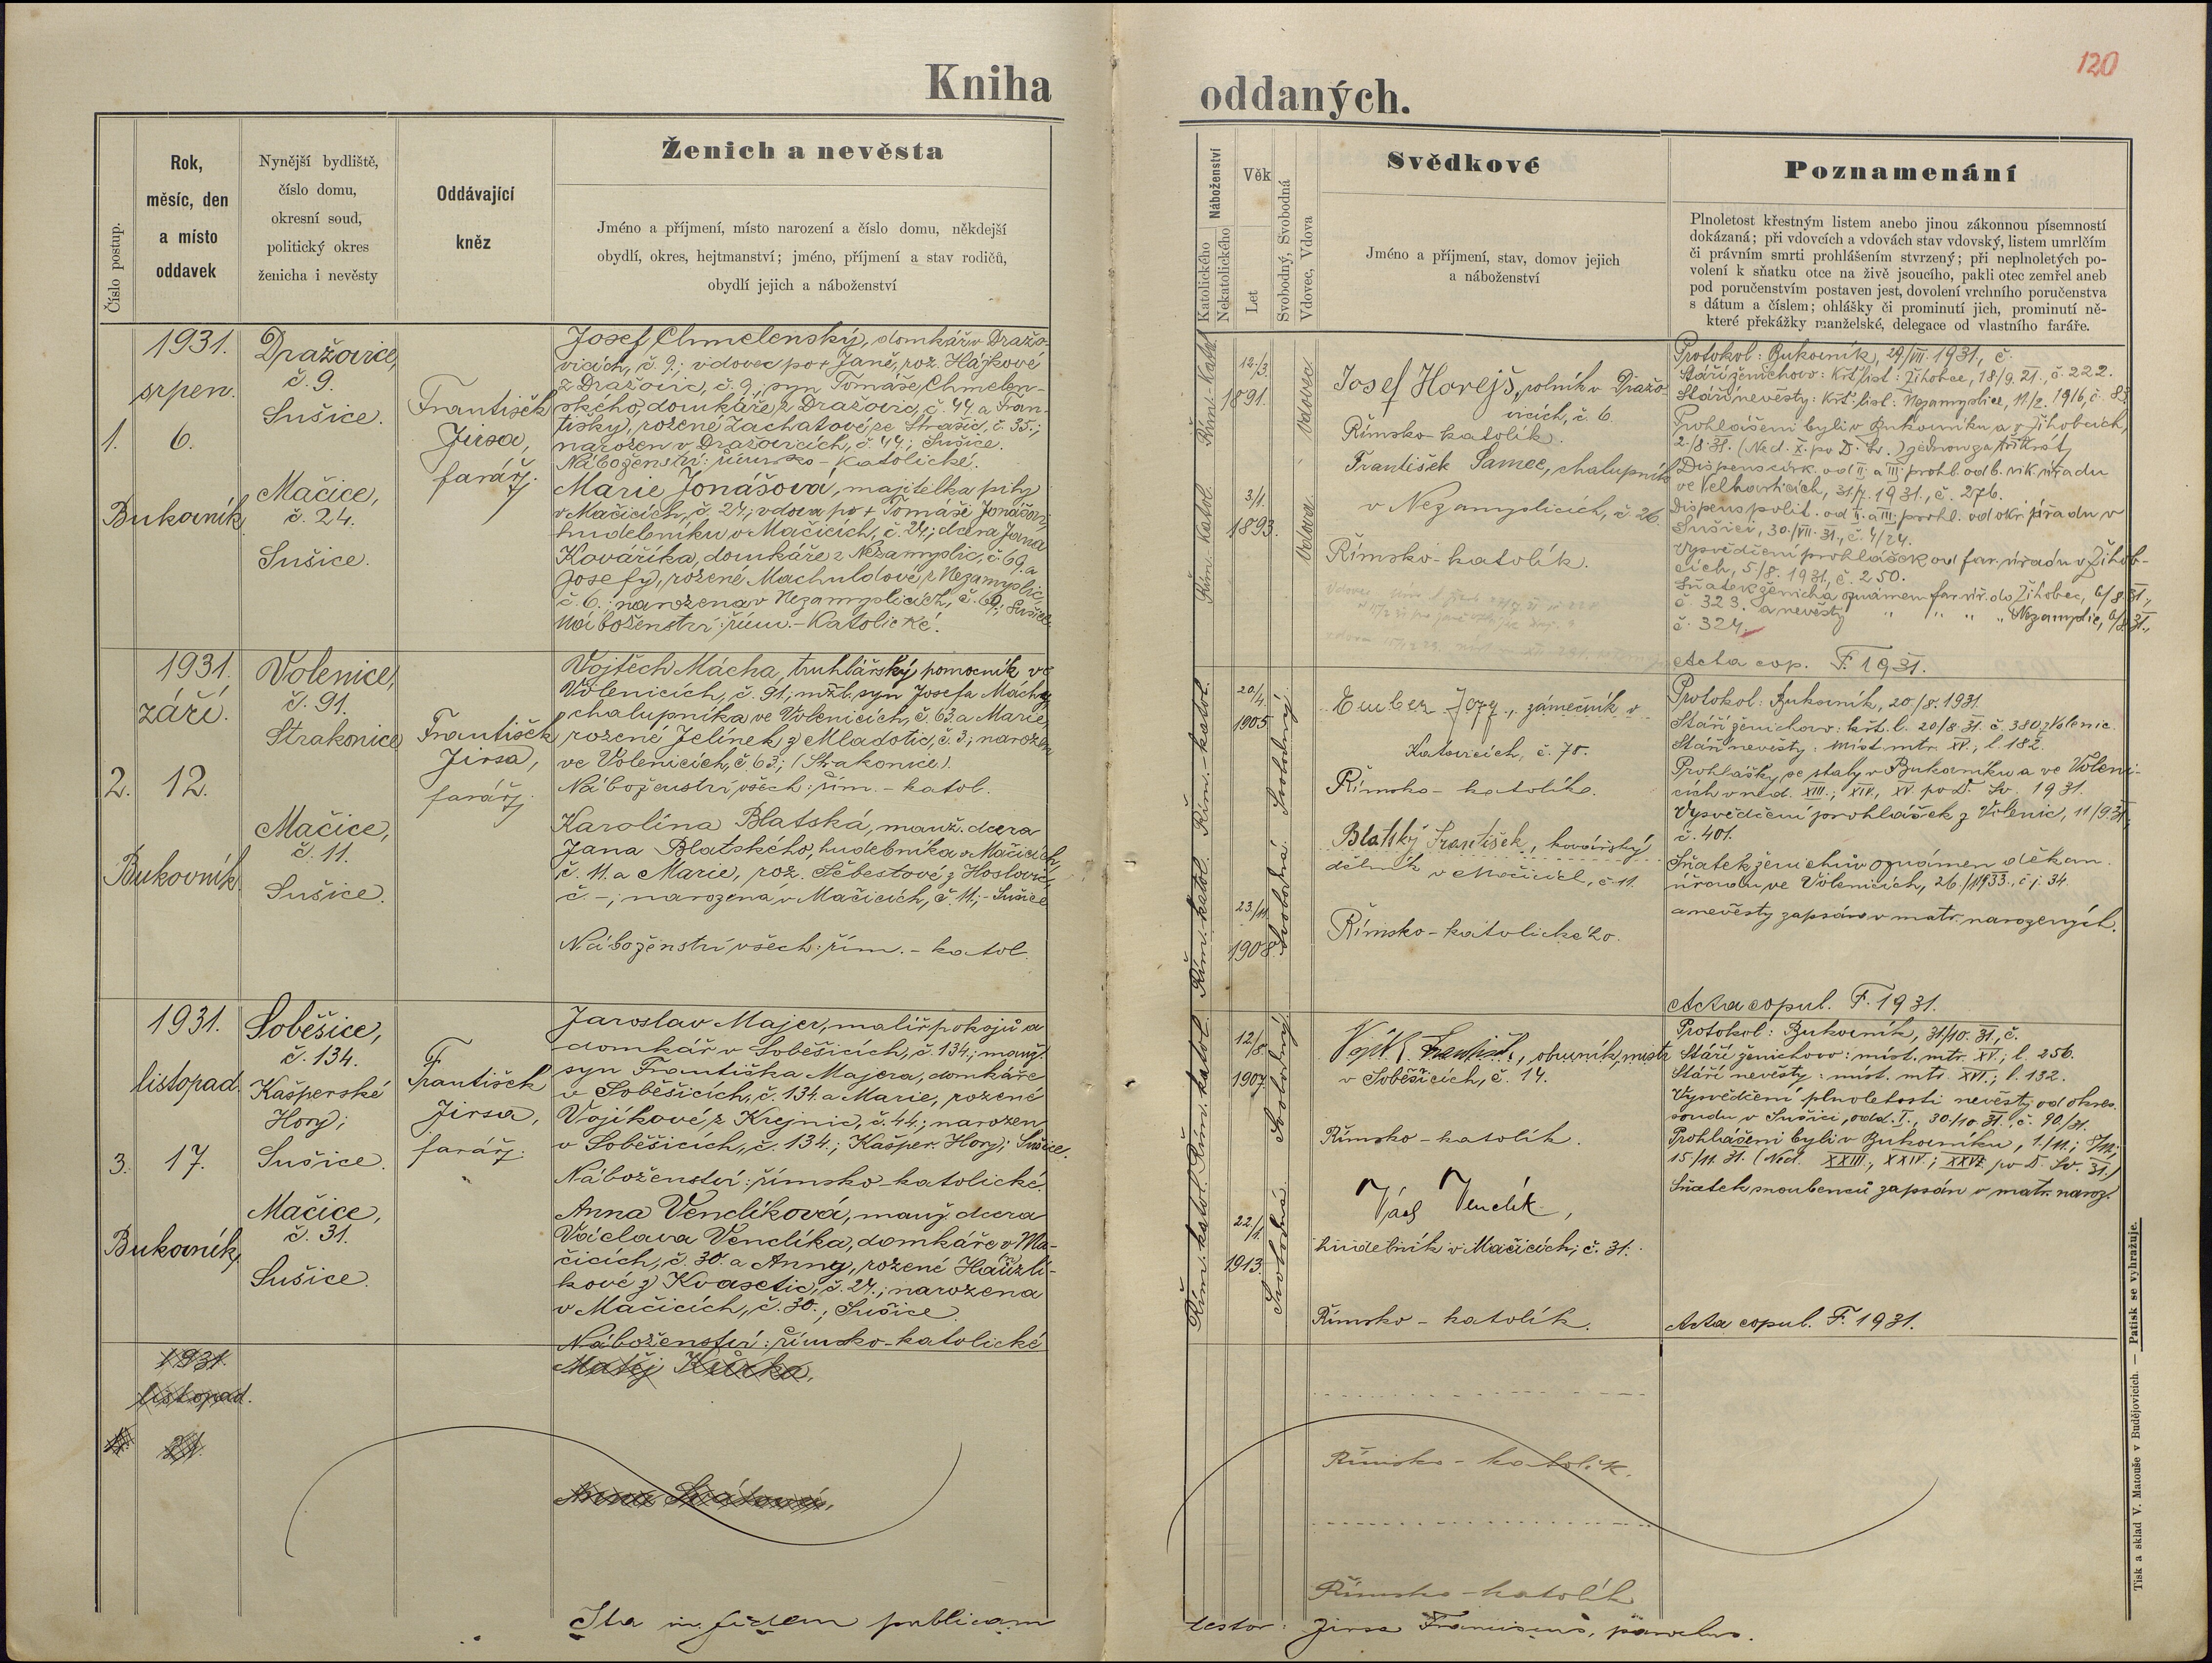 120
Kniha oddaných.
Číslo postup.
Rok,
měsíc, den
a místo
oddavek
Nynější bydliště,
číslo domu,
okresní soud,
politický okres
ženicha i nevěsty
Oddávající
kněz
Ženich a nevěsta
Jméno a příjmení, místo narození a číslo domu, někdejší
obydlí, okres, hejtmanství; jméno, příjmení a stav rodičů,
obydlí jejich a náboženství
Náboženství
Katolického
Nekatolického
Věk
Let
Svobodný, Svobodná
Vdovec, Vdova
Svědkové
Jméno a příjmení, stav, domov jejich
a náboženství
Poznamenání
Plnoletost křestným listem anebo jinou zákonnou písemností
dokázaná; při vdovcích a vdovách stav vdovský, listem umrlčím
či právním smrti prohlášením stvrzený; při neplnoletých po-
volení k sňatku otce na živě jsoucího, pakli otec zemřel aneb
pod poručenstvím postaven jest, dovolení vrchního poručenstva
s dátum a číslem; ohlášky či prominutí jich, prominutí ně-
které překážky manželské, delegace od vlastního faráře.
1.
1931.
srpen.
6.
Bukovník
Dražovice,
č. 9.
Sušice.
Mačice,
č. 24.
Sušice.
František
Jirsa,
farář.
Josef Chmelenský, domkář v Dražo-
vicích, č. 9.; vdovec po + Janě, roz. Hájkové
z Dražovic, č. 9.; syn Tomáše Chmelen-
ského, domkáře z Dražovic, č. 44. a Fran-
tišky, rozené Zachatové ze Strašic, č. 35.;
narozen v Dražovicích, č. 44.; Sušice.
Náboženství: římsko-katolické.
Marie Jonášová, majitelka pily
v Mačicích, č. 24.; vdova po + Tomáši Jonášovi,
hudebníku v Mačicích, č. 24.; dcera Jana
Kováříka, domkáře z Nezamyslic, č. 69. a
Josefy, rozené Machuldové z Nezamyslic,
č. 6.; narozena v Nezamyslicích, č. 69.; Sušice.
Náboženství: řím.-katolické.
Řím.-Katol.
12./3.
1891.
Vdovec
Řím.-Katol.
3/1.
1893.
Vdova
Josef Horejš, rolník v Dražo-
vicích, č. 6.
Římsko-katolík.
František Samec, chalupník
v Nezamyslicích, č. 26.
Římsko-katolík.
Protokol: Bukovník, 29./VII. 1931., č.
Stáří ženichovo: Křt. list: Žihobce, 18/9. 21., č. 222.
Stáří nevěsty: Křt. list: Nezamyslice, 11/2. 1916, č. 83.
Prohlášeni byli v Bukovníku a v Žihobcích,
2./8. 31. (Ned. X. po D. Sv.) jednou za třikrát,
Dispens círk. od II. a III. prohl. od b. vik. úřadu
ve Velhartících, 31/7. 1931., č. 276.
Dispens polit. od II. a III. prohl. od okr. úřadu v
Sušici, 30./VII. 31., č. 4/24.
Vysvědčení prohlášek od far. úřadu v Žihob-
cích, 5/8. 1931, č. 250.
Sňatek ženicha oznámen far. úř. do Žihobec, 6/8 31.,
č. 323. a nevěsty " " " " Nezamyslic, 6/8. 31.,
č. 324.
Acta cop. F. 1931.
2.
1931.
září.
12.
Bukovník.
Volenice,
č. 91.
Strakonice
Mačice,
č. 11.
Sušice.
František
Jirsa,
farář.
Vojtěch Mácha, truhlářský pomocník ve
Volenicích, č. 91.; mžl. syn Josefa Máchy,
chalupníka ve Volenicích, č. 63. a Marie,
rozené Jelínek z Mladotic, č. 3.; narozen
ve Volenicích, č. 63.; (Strakonice).
Náboženství všech: řím.-katol.
Karolína Blatská, manž. dcera
Jana Blatského, hudebníka v Mačicích,
č. 11. a Marie, roz. Šebestové z Hoslovic,
č. -; narozena v Mačicích, č. 11.; - Sušice
Náboženství všech: řím.-katol.
Řím.-katol.
20/4.
1905.
Svobodný.
Řím.-katol.
23./11.
1908.
Svobodná.
zámečník v
Katovicích, č. 78.
Římsko-katolík.
Blatský František, kovářský
dělník v Mačicích, č. 11.
Římsko-katolického.
Protokol: Bukovník, 20./8. 1931.
Stáří ženichovo: křt. l. 20/8. 31. č. 380 z Volenic.
Stáří nevěsty: míst. mtr. XV.; l. 182.
Prohlášky se staly v Bukovníku a ve Voleni-
cích v ned. XIII.; XIV., XV. po D. Sv. 1931.
Vysvědčení prohlášek z Volenic, 11/9. 31.,
č. 401.
Sňatek ženichův oznámen děkan.
úřadu ve Volenicích, 26./1 1933., č. j. 34.
a nevěsty zapsán v matr. narozených.
Acta copul. F. 1931.
3.
1931.
listopad.
17.
Bukovník.
Soběšice,
č. 134.
Kašperské
Hory;
Sušice.
Mačice,
č. 31.
Sušice.
František
Jirsa,
farář.
Jaroslav Majer, malíř pokojů a
domkář v Soběšicích, č. 134.; manž.
syn Františka Majera, domkáře
v Soběšicích, č. 134. a Marie, rozené
Vojíkové z Krejnic, č. 44.; narozen
v Soběšicích, č. 134.; Kašper. Hory; Sušice.
Náboženství: římsko-katolické.
Anna Venclíková, manž. dcera
Václava Venclíka, domkáře v Ma-
čicích, č. 30. a Anny, rozené Hauzlí-
kové z Kvasetic, č. 24.; narozena
v Mačicích, č. 30.; Sušice.
Náboženství: římsko-katolické
Řím.-katol.
12/8.
1907.
Svobodný.
Řím.-katol.
22./1.
1913.
Svobodná.
Vojík František, obuvník, mistr
v Soběšicích, č. 14.
Římsko-katolík.
Václ Venclík,
hudebník v Mačicích, č. 31.
Římsko-katolík.
Protokol: Bukovník, 31/10. 31., č.
Stáří ženichovo: míst. mtr. XV.; l. 256.
Stáří nevěsty: míst. mtr. XVI.; l. 132.
Vysvědčení plnoletosti nevěsty od okres.
soudu v Sušici, odd. I., 30/10. 31., č. 90/31.
Prohlášeni byli v Bukovníku, 1./11.; 8/11.;
15/11. 31. (Ned. XXIII., XXIV.; XXV. po D. Sv. 31.)
Sňatek snoubenců zapsán v matr. naroz.
Acta copul. F. 1931.
1931.
listopad.
21.
Matěj Kůrka,
Anna
Římsko-katolík.
Římsko-katolík
Ita in fidem publicam testor: Jirsa Franciscus, parochus.
Tisk a sklad V. Matouše v Budějovicích. — Patisk se vyhražuje.